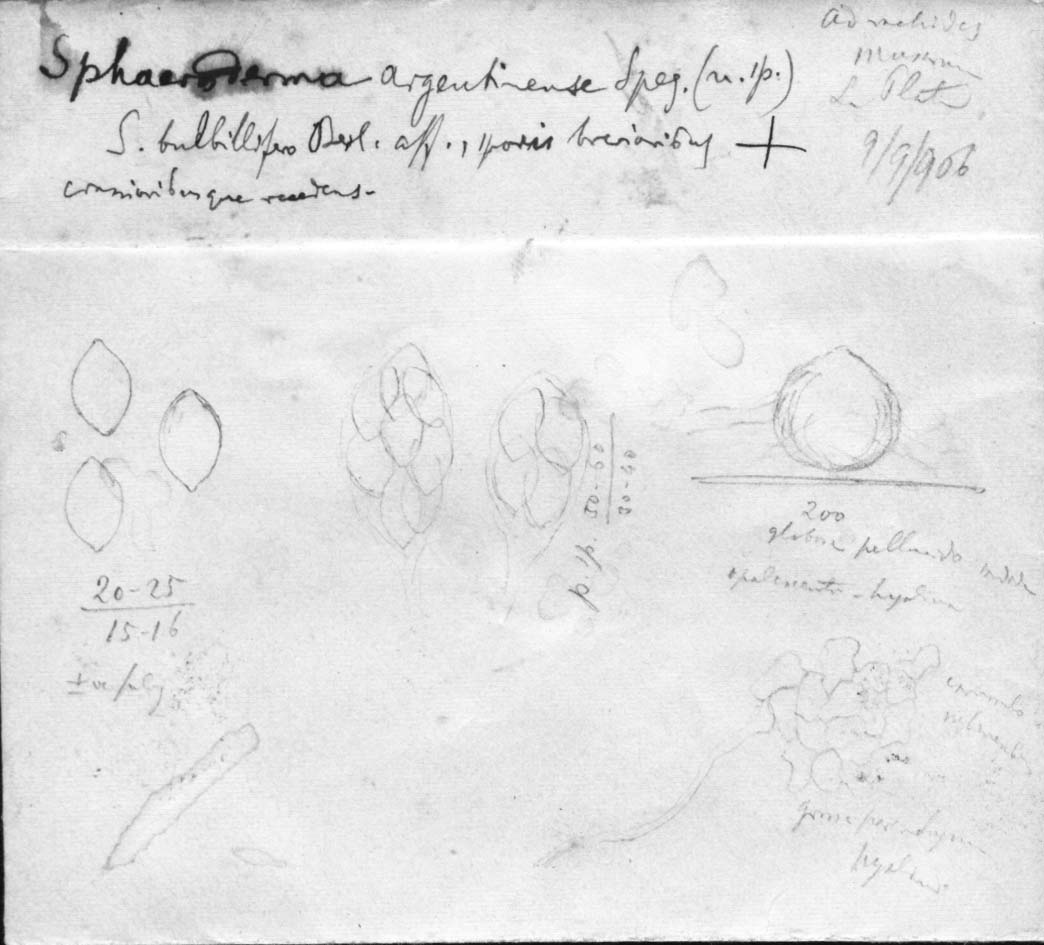 Sphaeroderma argentinense Speg. (n. sp.)
S. bulbillifero Berl. aff., sporis brevioribus +
crassioribusque recedens-
Ad orchides
Museum
La Plata
9/9/906
20-25
15-16
50-60
30-40
p. sp.
200
globosa pellucido
opalescente-hyalina
hyalino